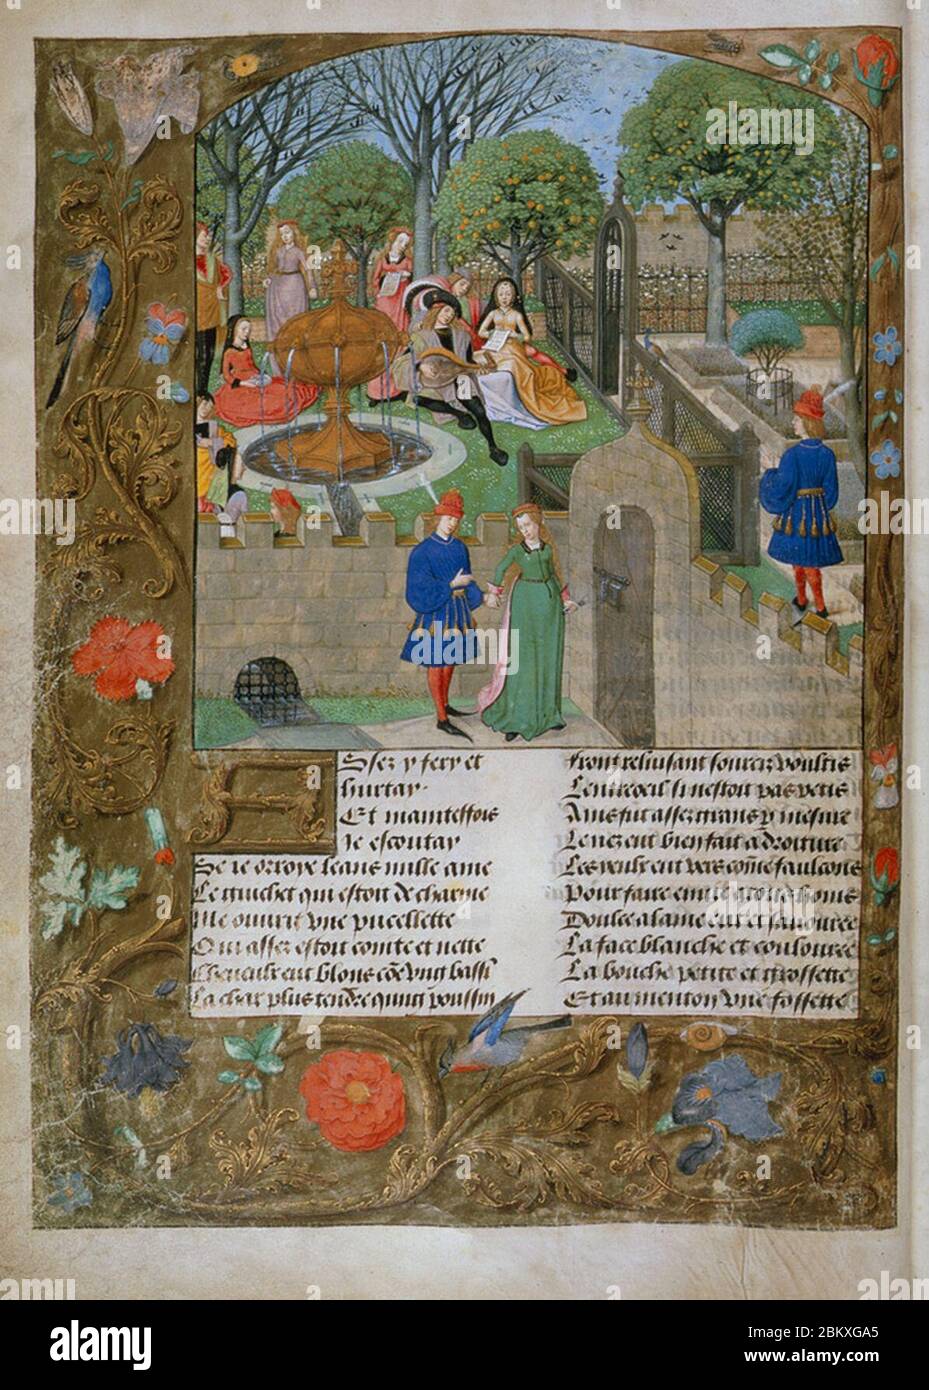 Assez y fery et
hurtay.
Et maintesfois
ie escoutay
Se ie orroye leans nulle ame
Le guichet qui estoit de charme
Me ouurit vne pucellette
Qui assez estoit cointe et nette
Cheueulx eut blons cõe vng bassi
La char plus tendre qung poussin
front reluisant sourcix voultis
Lentreoeil si nestoit pas petis
Ains fut assez grans p mesure
Le nez eut bien fait a droiture
Les yeulx eut vers cõme faulcons
Pour faire enuie a ces
Doulce alaine eut et sauouree
La face blanche et coulouree
La bouche petite et grossette
Et au menton vne fossette
alamy
Image ID: 2BKXGA5
www.alamy.com